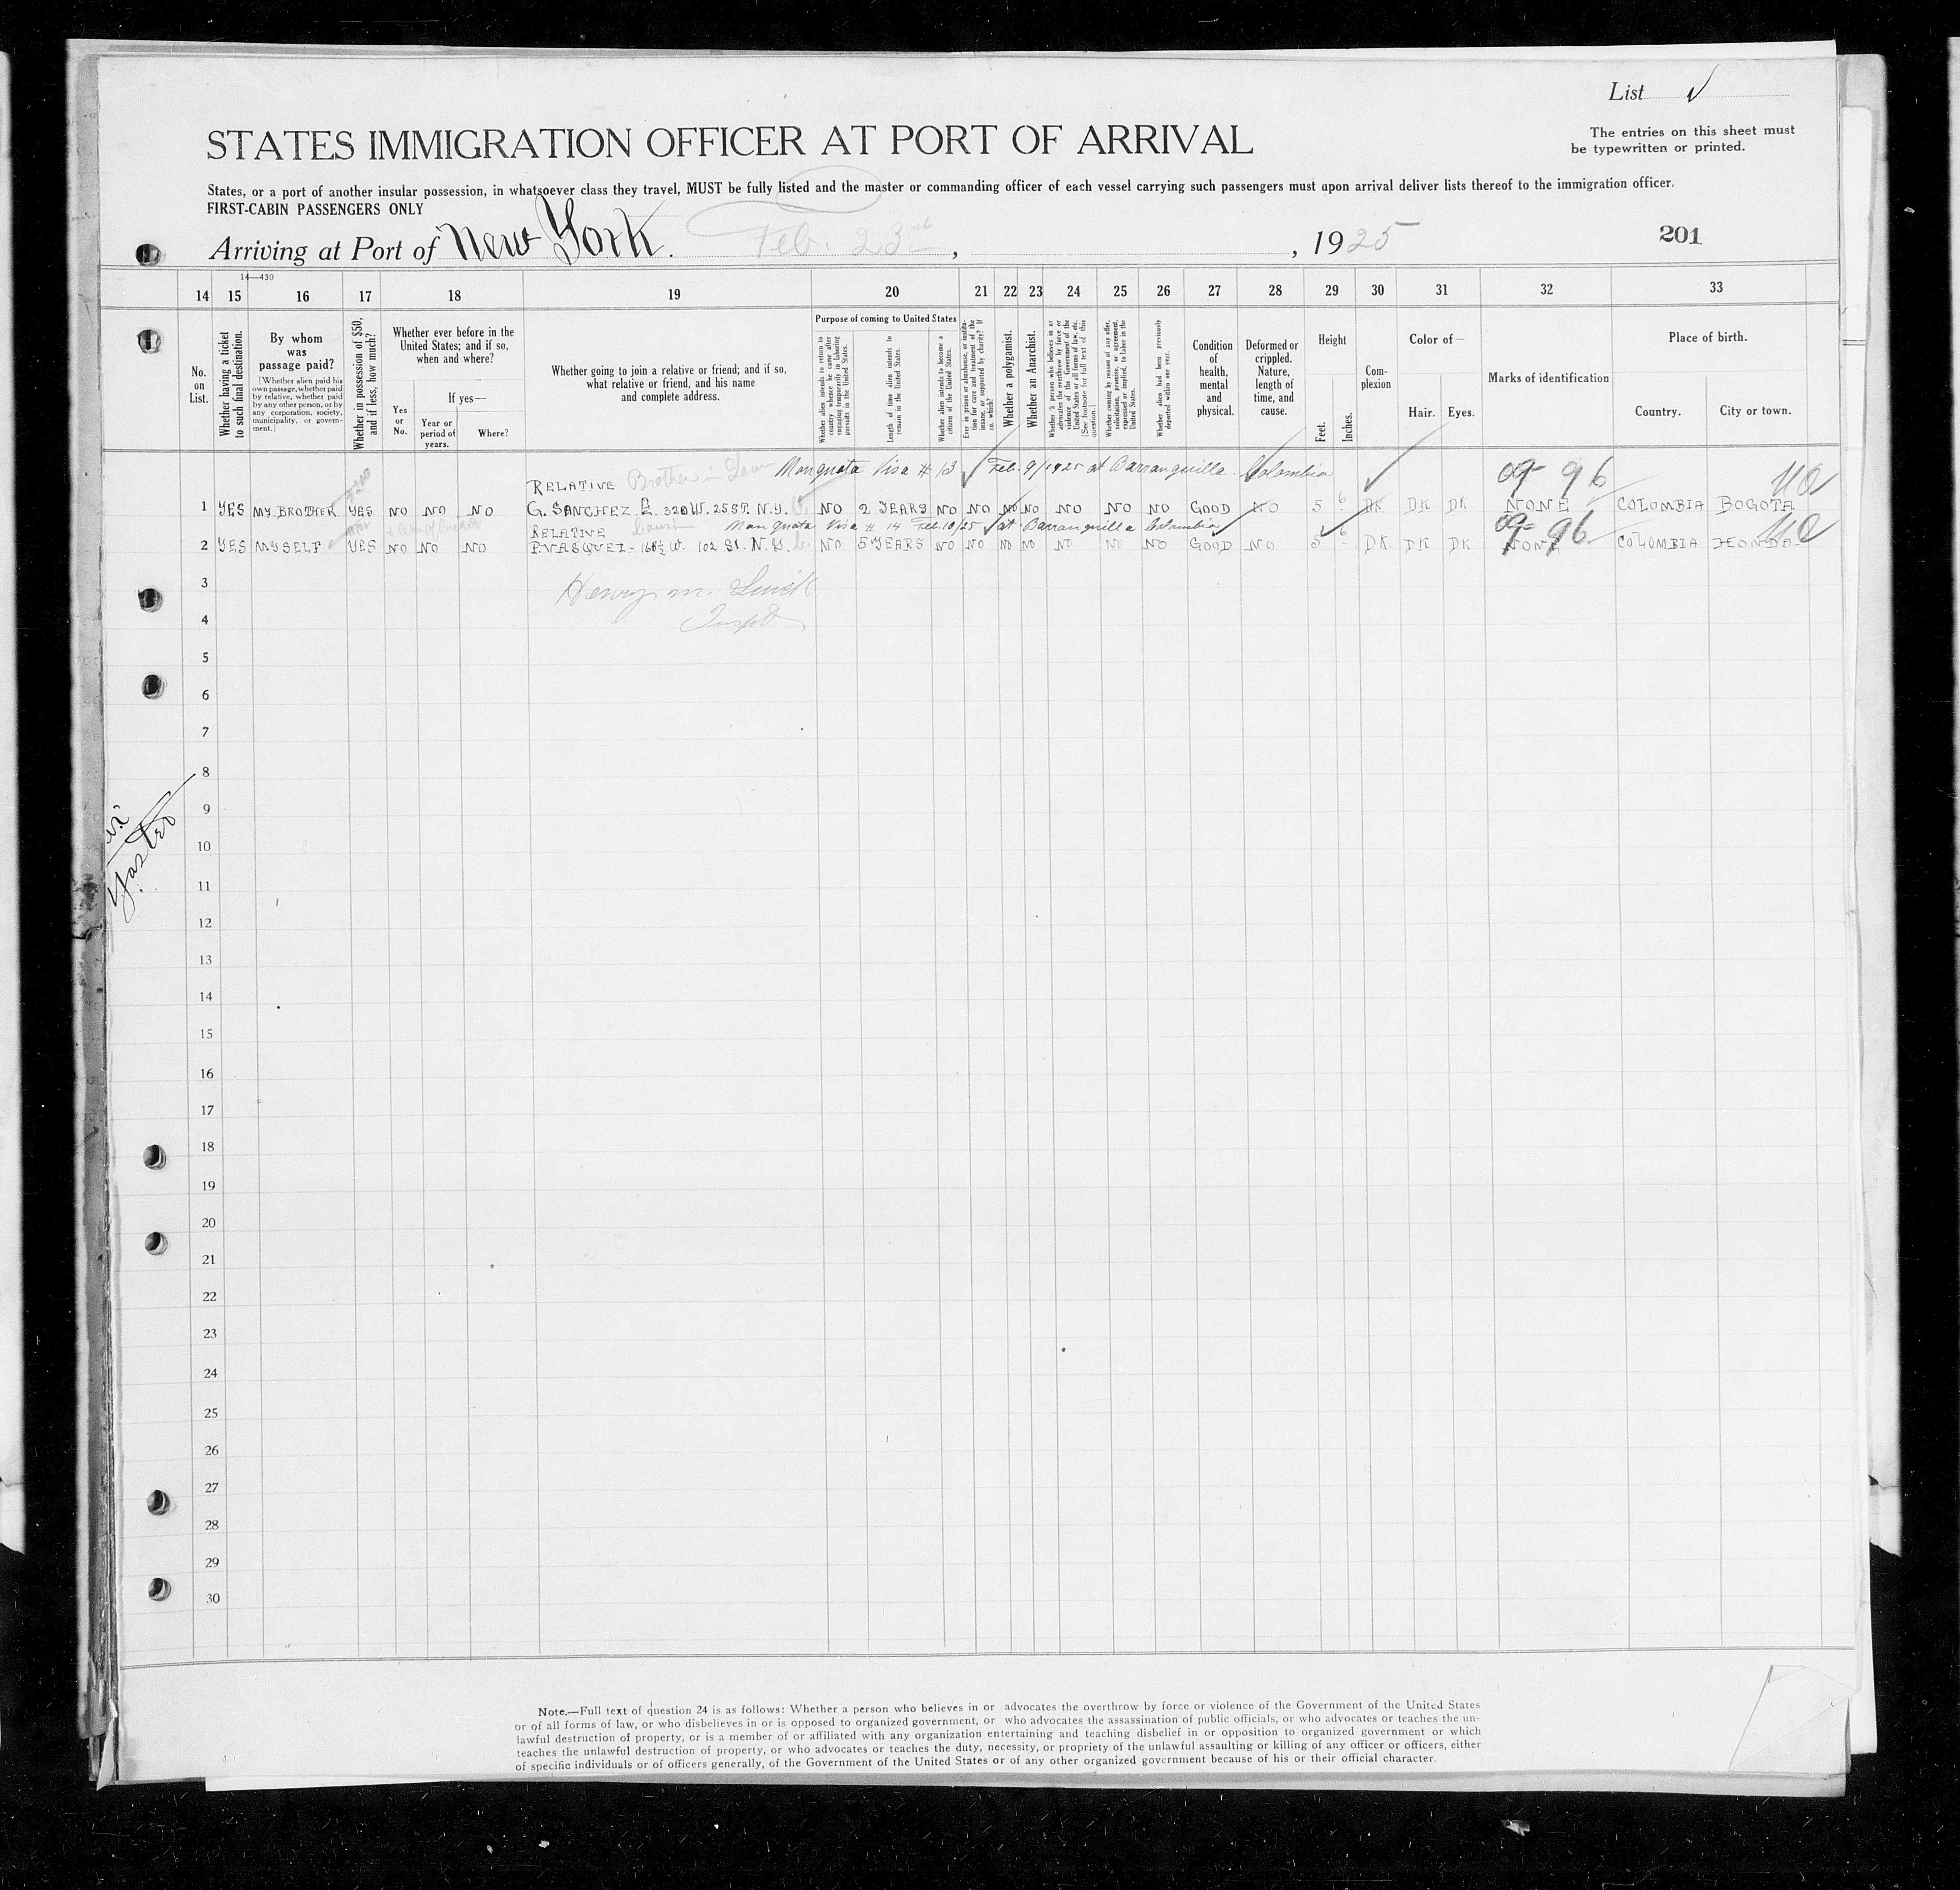 List
STATES IMMIGRATION OFFICER AT PORT OF ARRIVAL
The entries on this sheet must
be typewritten or printed.
States, or a port of another insular possession, in whatsoever class they travel, MUST be fully listed and the master or commanding officer of each vessel carrying such passengers must upon arrival deliver lists thereof to the immigration officer.
FIRST-CABIN PASSENGERS ONLY
Arriving at Port of New York. Feb. 23rd, , 1925
201
14—430
14 15 16 17 18 19 20 21 22 23 24 25 26 27 28 29 30 31 32 33
No. on List.
Whether having a ticket to such final destination.
By whom was passage paid?
[Whether alien paid his own passage, whether paid by relative, whether paid by any other person, or by any corporation, society, municipality, or government.]
Whether in possession of $50, and if less, how much?
Whether ever before in the United States; and if so, when and where?
If yes—
Yes or No.
Year or period of years.
Where?
Whether going to join a relative or friend; and if so, what relative or friend, and his name and complete address.
Purpose of coming to United States
Whether alien intends to return to country whence he came after engaging temporarily in laboring pursuits in the United States.
Length of time alien intends to remain in the United States.
Whether alien intends to become a citizen of the United States.
Ever in prison or almshouse, or institution for care and treatment of the insane, or supported by charity? If so, which?
Whether a polygamist.
Whether an Anarchist.
Whether a person who believes in or advocates the overthrow by force or violence of the Government of the United States or all forms of law, etc. [See footnote for full text of this question.]
Whether coming by reason of any offer, solicitation, promise, or agreement, expressed or implied, to labor in the United States.
Whether alien had been previously deported within one year.
Condition of health, mental and physical.
Deformed or crippled. Nature, length of time, and cause.
Height
Feet. Inches.
Complexion
Color of—
Hair. Eyes.
Marks of identification
Place of birth.
Country. City or town.
Brother in Law Nonquota Visa # 13 Feb. 9/1925 at Barranquilla Colombia 09- 96
RELATIVE
1 YES MY BROTHER YES NO NO NO G. SANCHEZ E. 320 W. 25 ST. N.Y. NO 2 YEARS NO NO NO NO NO NO NO GOOD NO 5 6 DK DK DK NONE COLOMBIA BOGOTA
RELATIVE Cousin Nonquota Visa # 14 Feb. 10/25 at Barranquilla Colombia 09- 96
2 YES MYSELF YES NO NO NO P. VASQUEZ - 168½ W. 102 St. N.Y. NO 5 YEARS NO NO NO NO NO NO NO GOOD NO 5 6 DK DK DK NONE COLOMBIA HONDA
3 Henry M.
4 Inspt
5
6
7
8
9
10
11
12
13
14
15
16
17
18
19
20
21
22
23
24
25
26
27
28
29
30
Note.—Full text of question 24 is as follows: Whether a person who believes in or advocates the overthrow by force or violence of the Government of the United States
or of all forms of law, or who disbelieves in or is opposed to organized government, or who advocates the assassination of public officials, or who advocates or teaches the un-
lawful destruction of property, or is a member of or affiliated with any organization entertaining and teaching disbelief in or opposition to organized government or which
teaches the unlawful destruction of property, or who advocates or teaches the duty, necessity, or propriety of the unlawful assaulting or killing of any officer or officers, either
of specific individuals or of officers generally, of the Government of the United States or of any other organized government because of his or their official character.